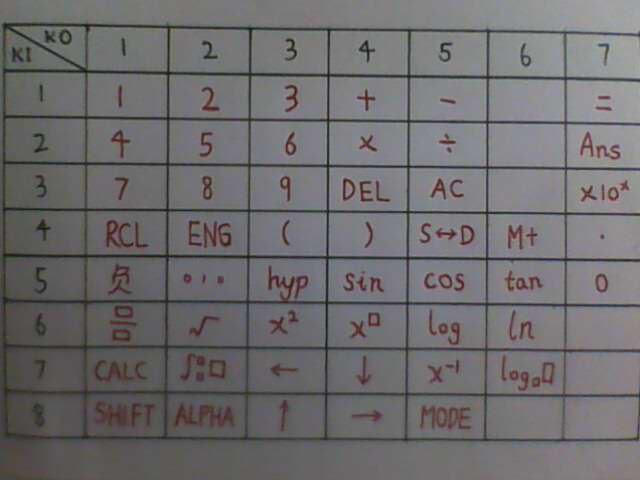 KI KO 1 2 3 4 5 6 7
1 1 2 3 + - =
2 4 5 6 × ÷ Ans
3 7 8 9 DEL AC ×10ˣ
4 RCL ENG ( ) S↔D M+ ·
5 负 ° ' " hyp sin cos tan 0
6 □/□ √ x² x□ log ln
7 CALC ∫□□□ ← ↓ x⁻¹ log□□
8 SHIFT ALPHA ↑ → MODE